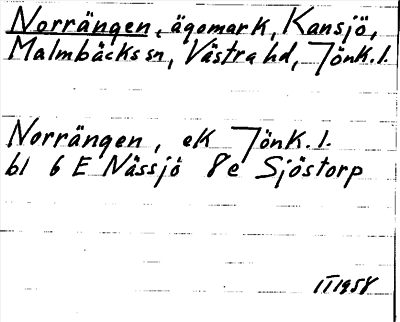 Norrängen, ägomark, Kansjö,
Malmbäcks sn, Västra hd, Jönk.l.
Norrängen, ek Jönk.l.
bl 6 E Nässjö 8e Sjöstorp
II 1958